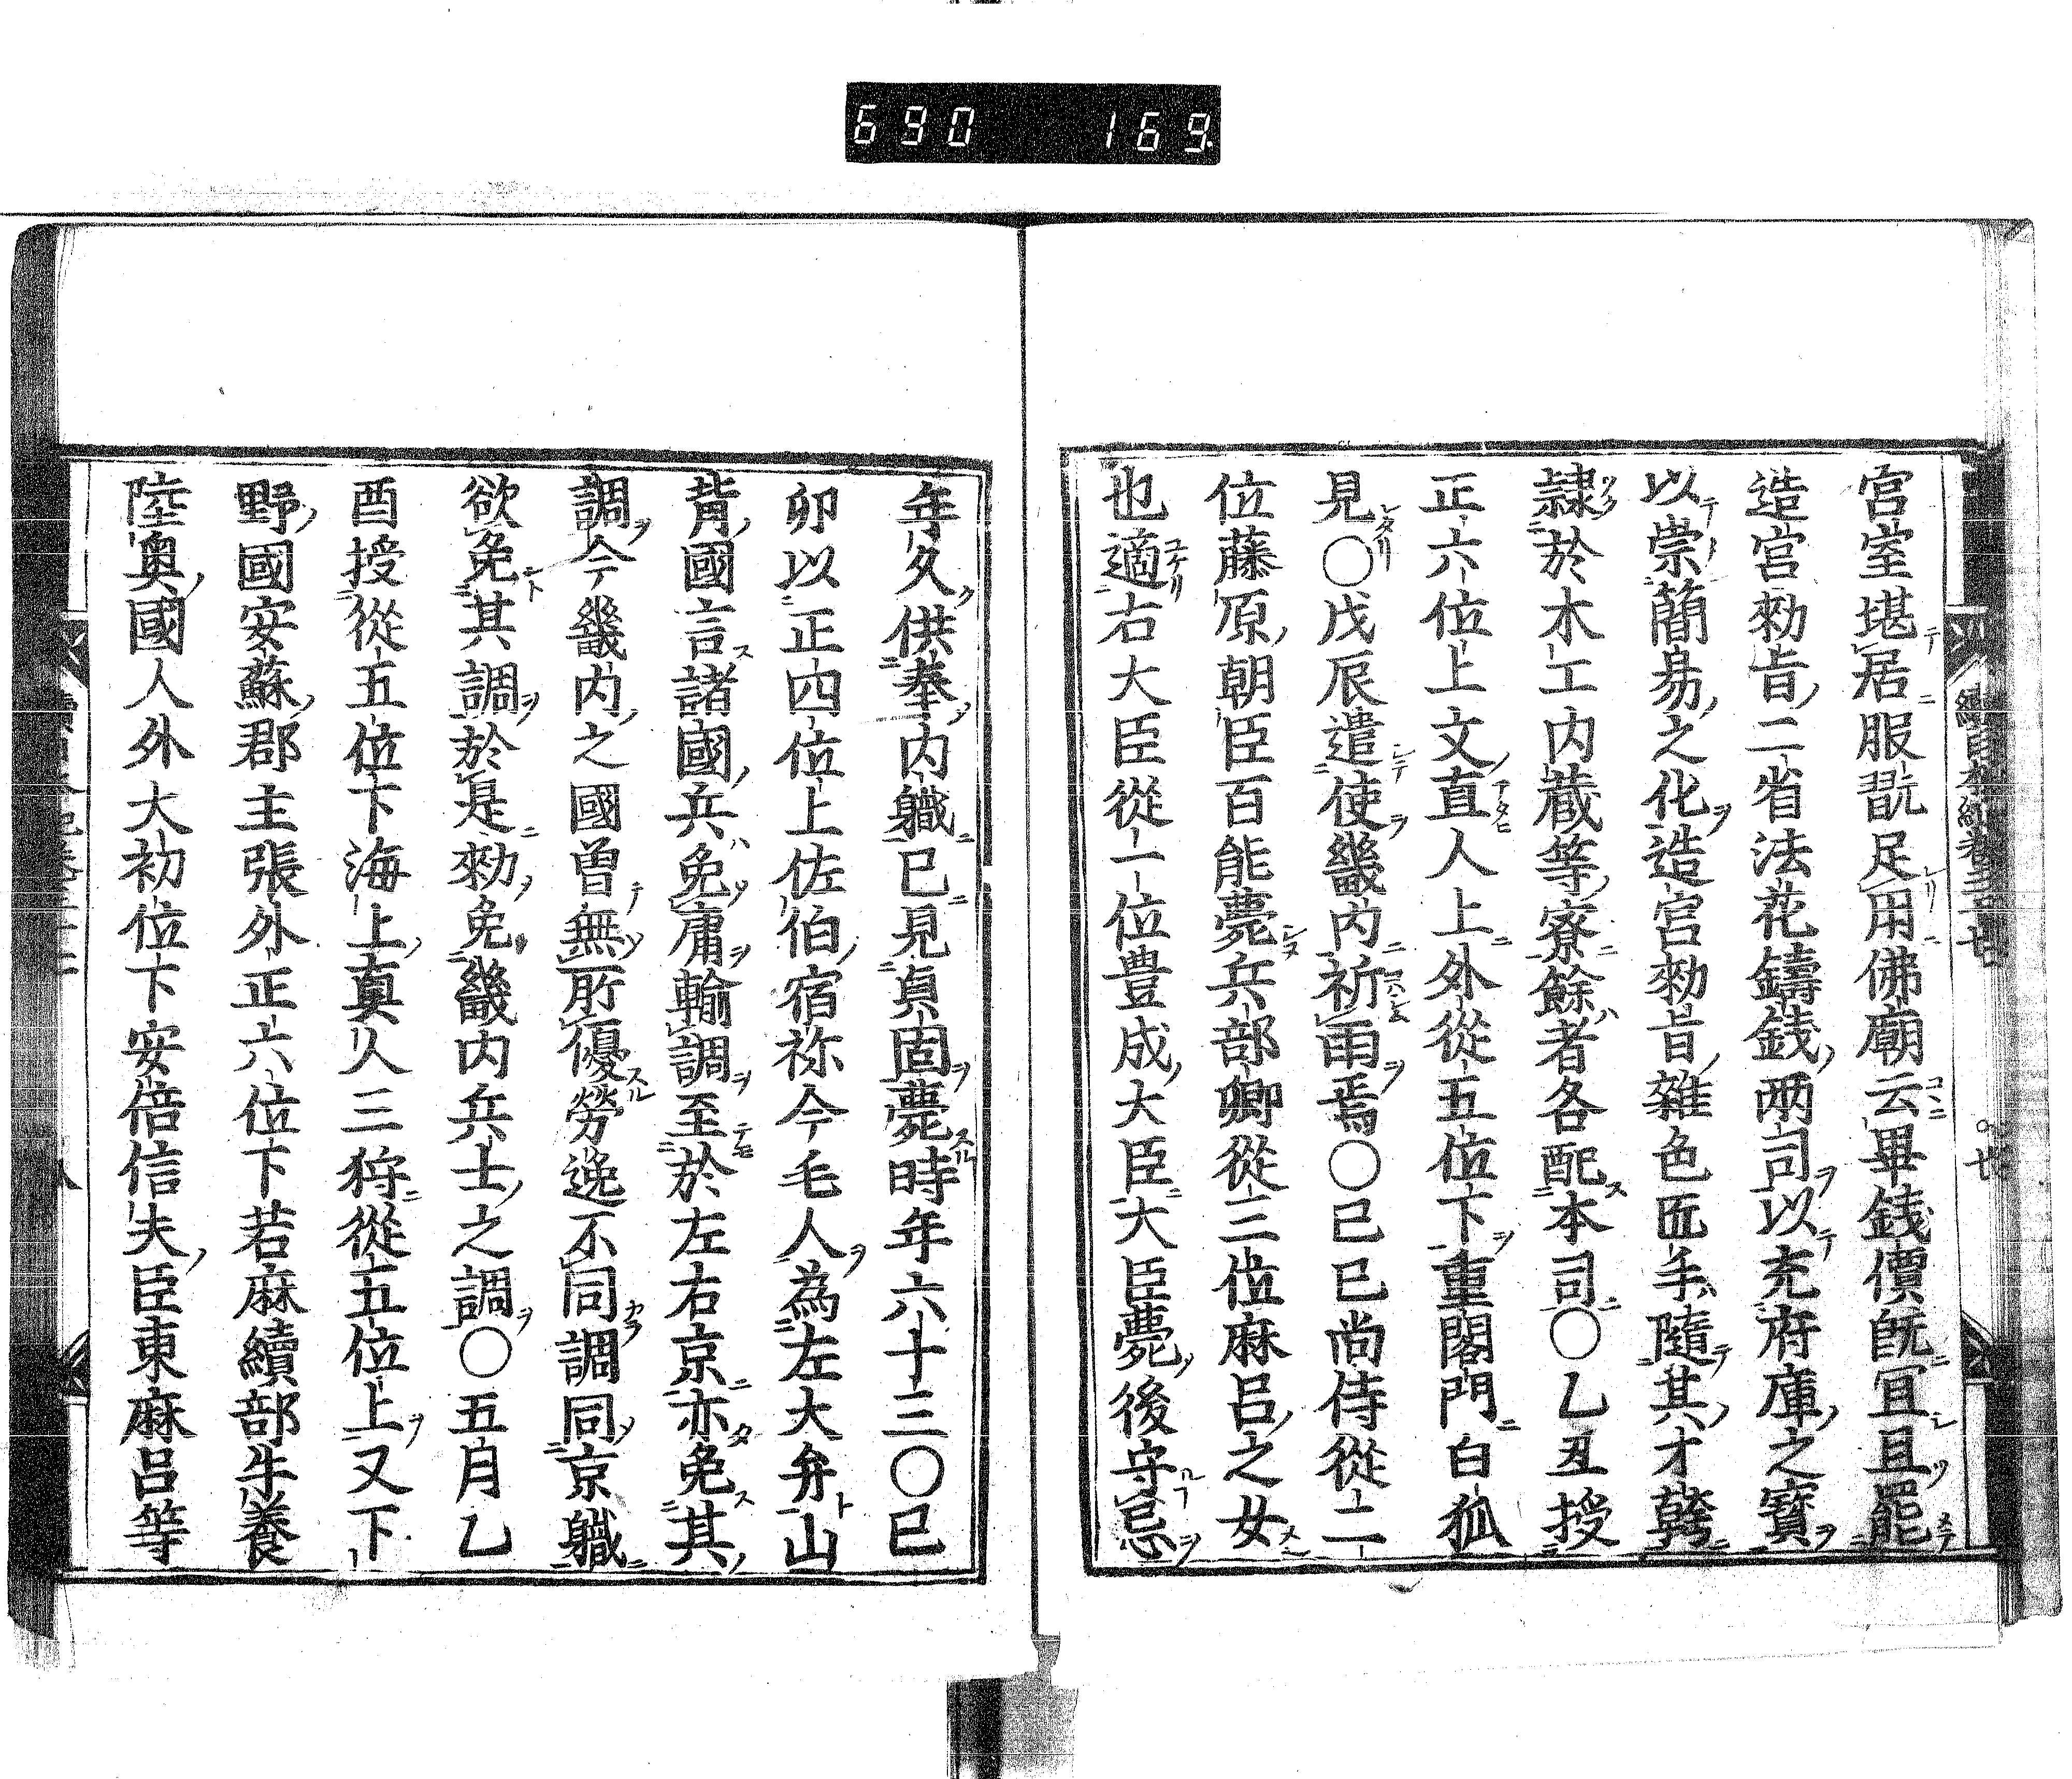 690 169
宮室堪居服翫足用佛廟云畢錢價旣冝且罷
造宮勑旨二省法花鑄錢兩司以充府庫之寶
以崇簡易之化造宮勑旨雜色匠手隨其才幹
隷於木工内藏等寮餘者各配本司○乙丑授
正六位上文直人上外從五位下重閣門白狐
見○戊辰遣使畿内祈雨焉○己巳尚侍從二
位藤原朝臣百能薨兵部卿從三位麻呂之女
也適右大臣從一位豊成大臣大臣薨後守忌
年久供奉内職已見貞固薨時年六十三○己
卯以正四位上佐伯宿祢今毛人為左大弁山
背國言諸國兵免庸輸調至於左右京亦免其
調今畿内之國曾無所優勞逸不同調同京職
欲免其調於是勑免畿内兵士之調○五月乙
酉授從五位下海上真人三狩從五位上又下
野國安蘇郡主張外正六位下若麻續部牛養
陸奥國人外大初位下安倍信夫臣東麻呂等